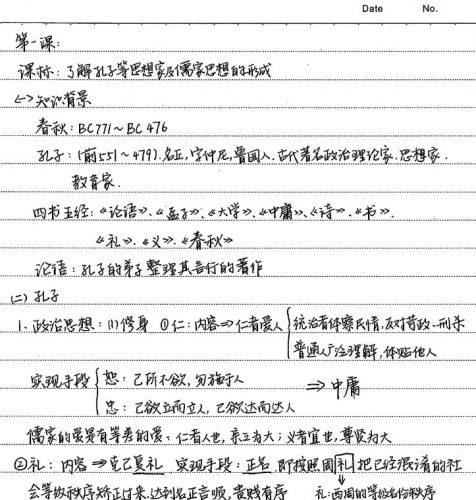 Date No.
第一课:
课标: 了解孔子等思想家及儒家思想的形成
(一)知识背景
春秋: BC771~BC476
孔子: (前551~479).名丘,字仲尼,鲁国人.古代著名政治理论家.思想家.
教育家.
四书五经:《论语》、《孟子》、《大学》、《中庸》、《诗》、《书》、
《礼》、《义》、《春秋》
论语: 孔子的弟子整理其言行的著作
(二)孔子
1.政治思想: (1)修身 ①仁: 内容⇒仁者爱人
统治者体察民情,反对苛政、刑杀
普通人应理解,体贴他人
实现手段
恕: 己所不欲,勿施于人
忠: 己欲立而立人,己欲达而达人
⇒中庸
儒家的爱是有等差的爱: 仁者人也,亲亲为大; 义者宜也,尊贤为大
②礼: 内容⇒克己复礼 实现手段: 正名 即按照周礼把已经混淆的社
会等级秩序矫正过来,达到名正言顺,贵贱有序
礼: 西周的等级名分秩序